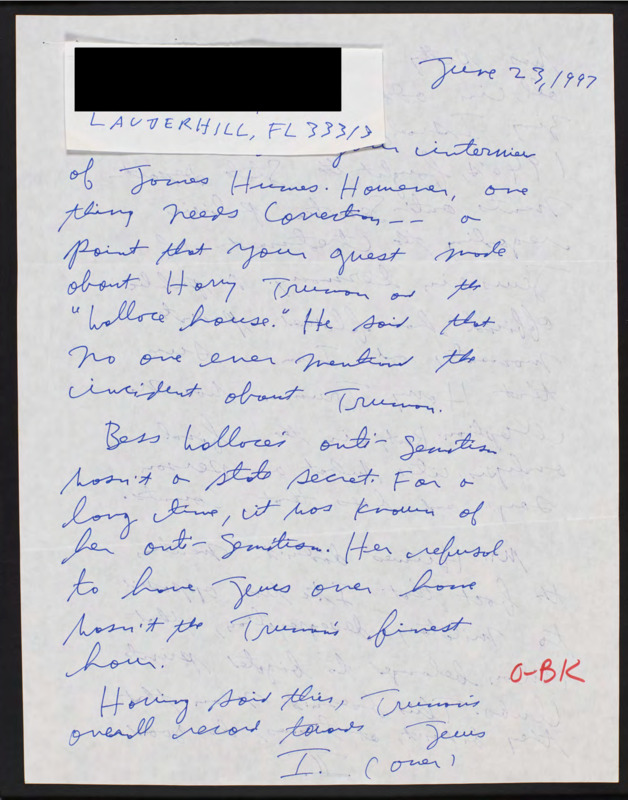 June 23, 1997
LAUDERHILL, FL 33313
your interview
of James Humes. However, one
thing needs Correction -- a
point that your guest made
about Harry Truman and the
"Wallace house." He said that
no one ever mentioned the
incident about Truman.
Bess Wallace's anti-Semitism
wasn't a state secret. For a
long time, it was known of
her anti-Semitism. Her refusal
to have Jews over home
wasn't the Truman's finest
hour.
O-BK
Having said this, Truman's
overall record towards Jews
I. (over)